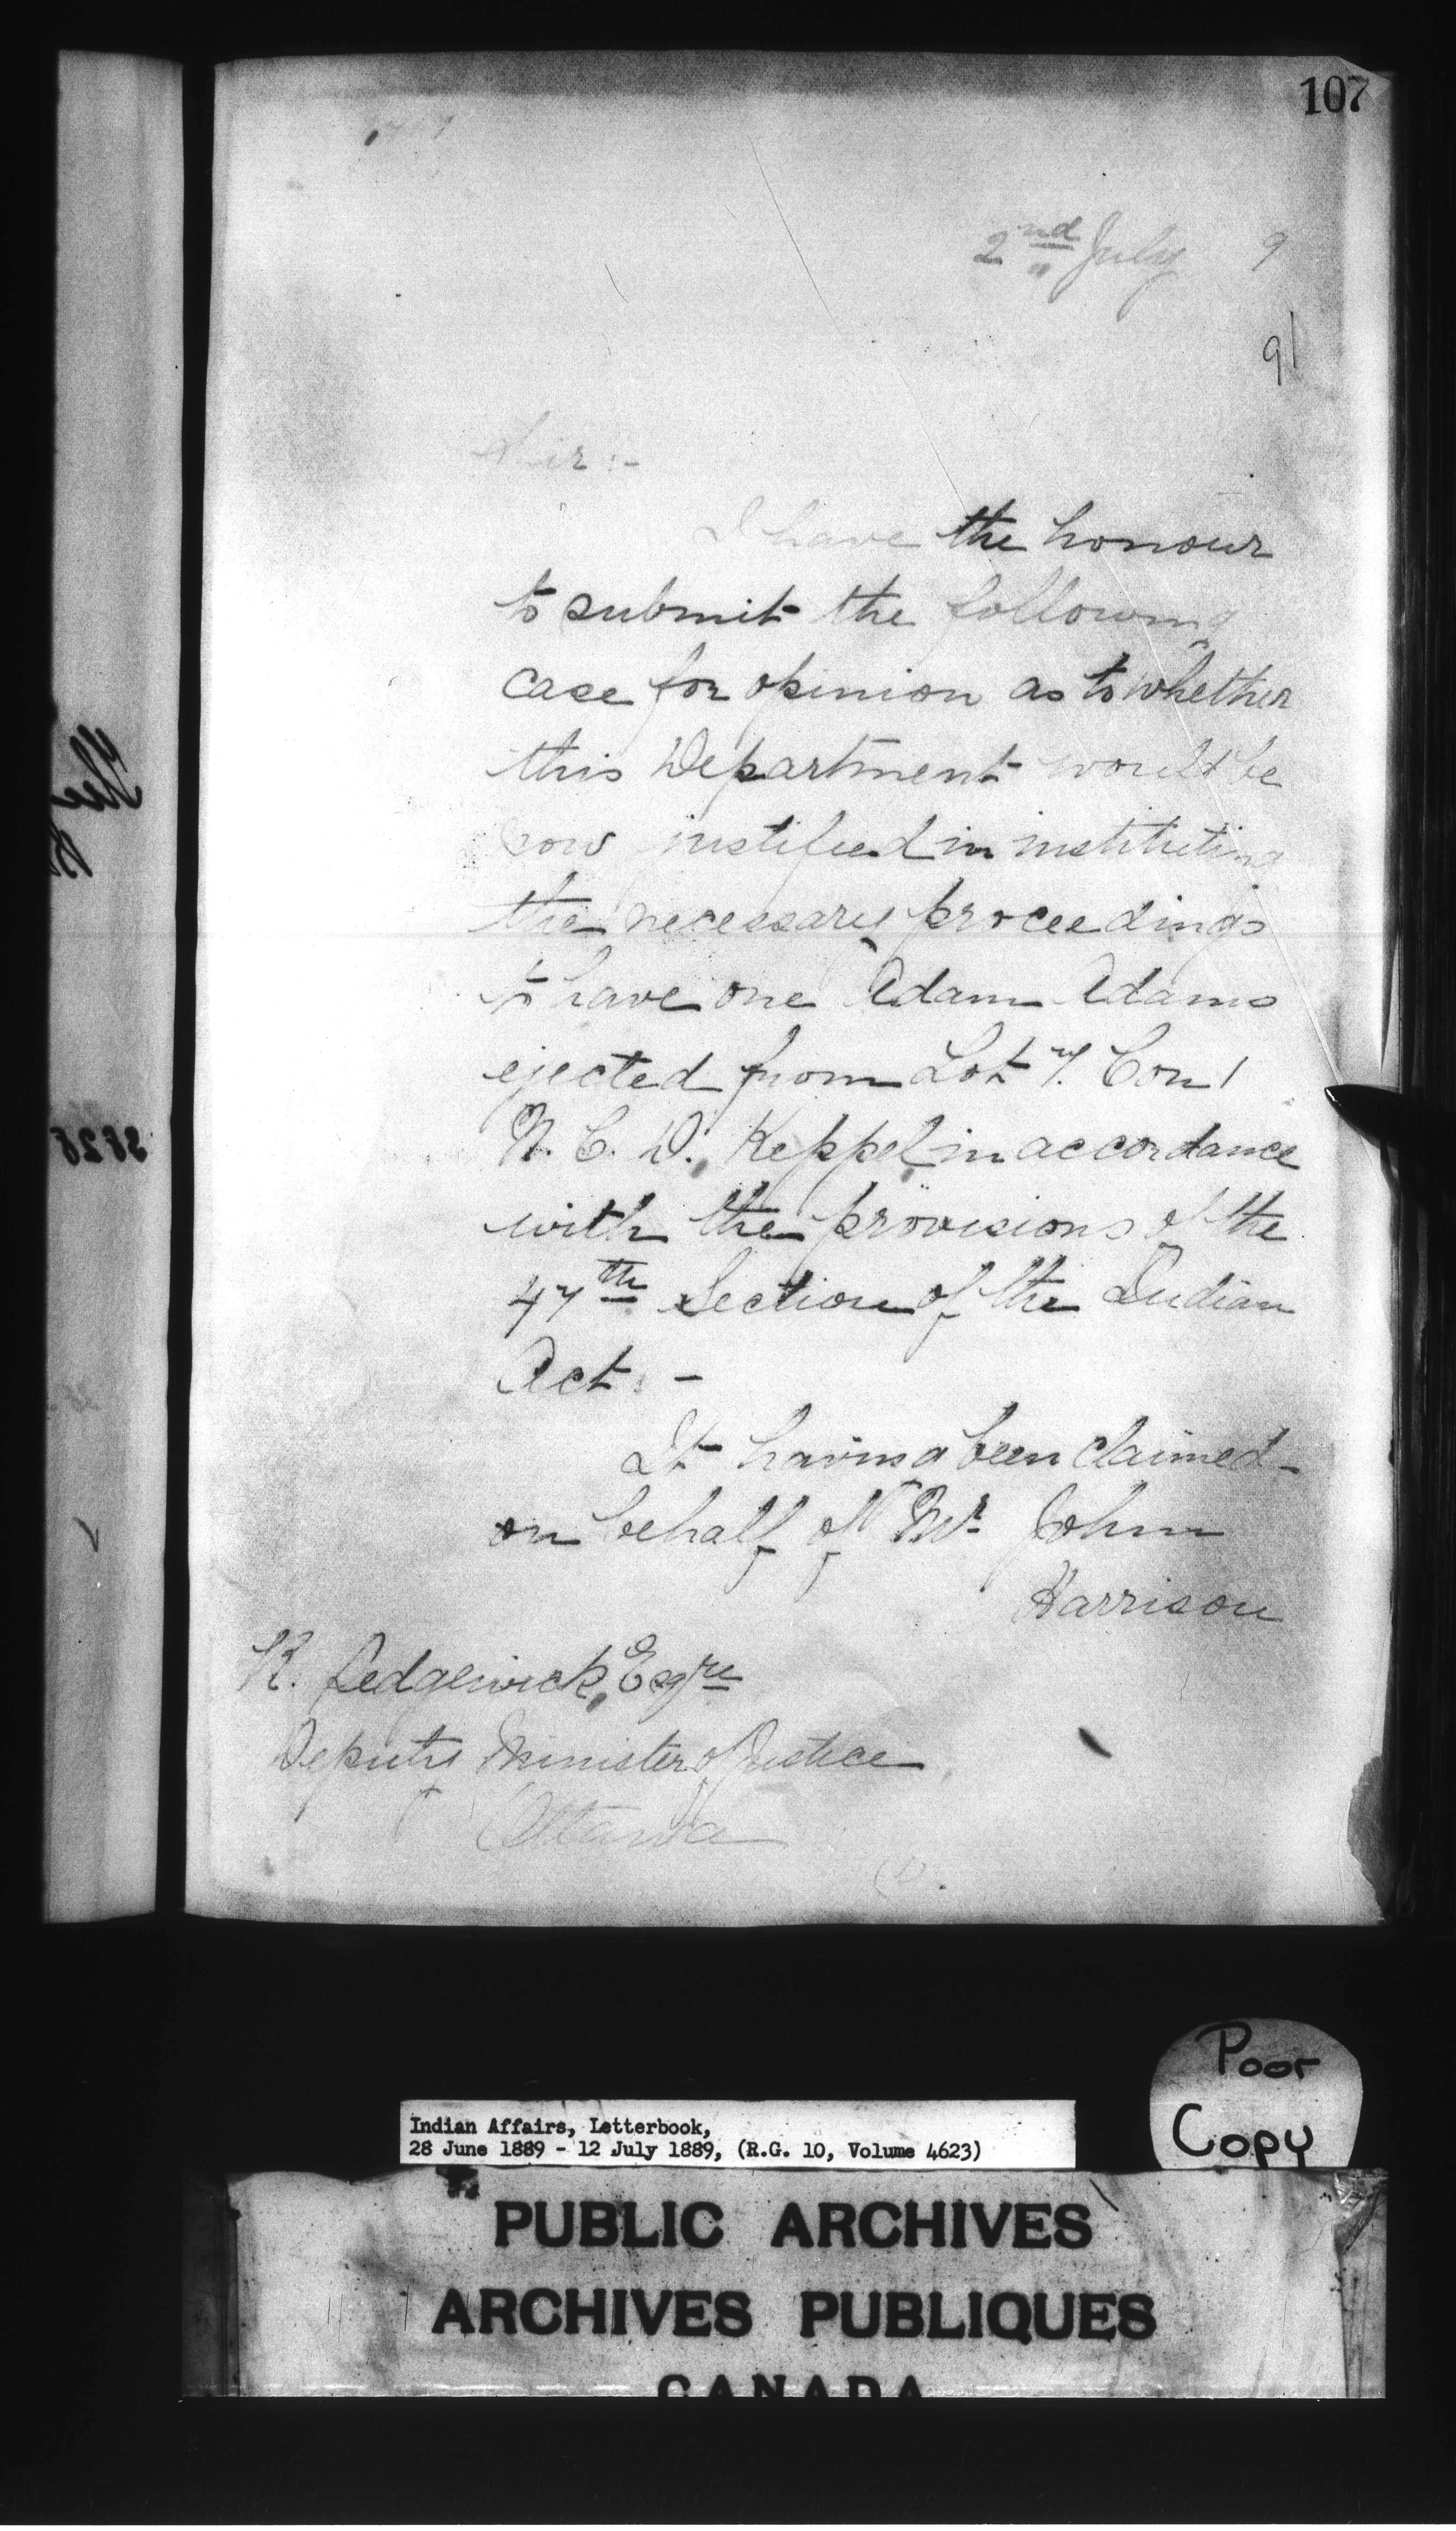 107
2nd July 9
91
Sir :-
I have the honour
to submit the following
case for opinion as to whether
this Department would be
now justified in instituting
the necessary proceedings
to have one Adam Adams
ejected from Lot 7. Con 1
N. C. D. Keppel in accordance
with the provisions of the
47th Section of the Indian
Act. -
It having been claimed
on behalf of Mr John
Harrison
R. Sedgewick, Esqre
Deputy Minister of Justice
Ottawa
Poor
Copy
Indian Affairs, Letterbook,
28 June 1889 - 12 July 1889, (R.G. 10, Volume 4623)
PUBLIC ARCHIVES
ARCHIVES PUBLIQUES
CANADA